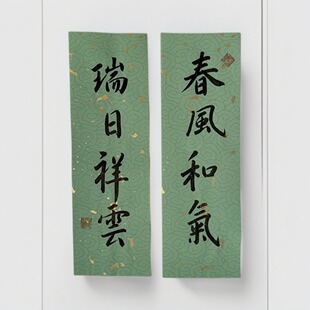 春風和氣
瑞日祥雲